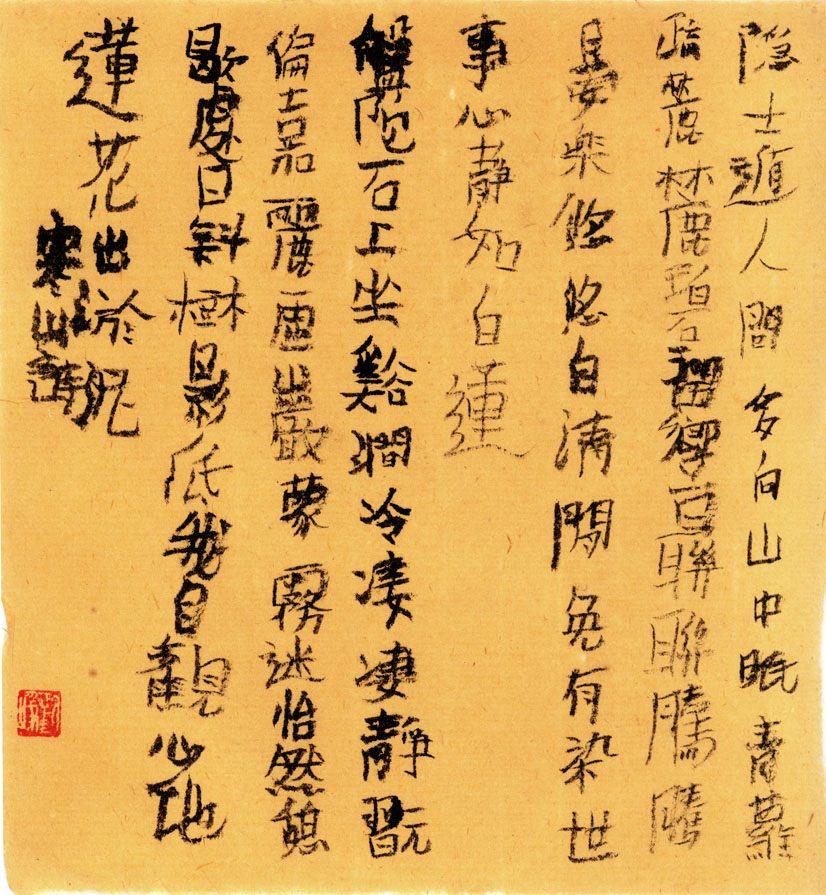 隐士遁人間多向山中眠青蘿
疏麓麓碧澗響聯聯騰騰
且晏樂悠悠自清閒免有染世
事心靜如白蓮
盤陀石上坐谿澗冷凄凄靜翫
偏嘉麗虛巖蒙霧迷怡然憩
歇處日斜樹影低我自觀心地
蓮花出淤泥
寒山詩